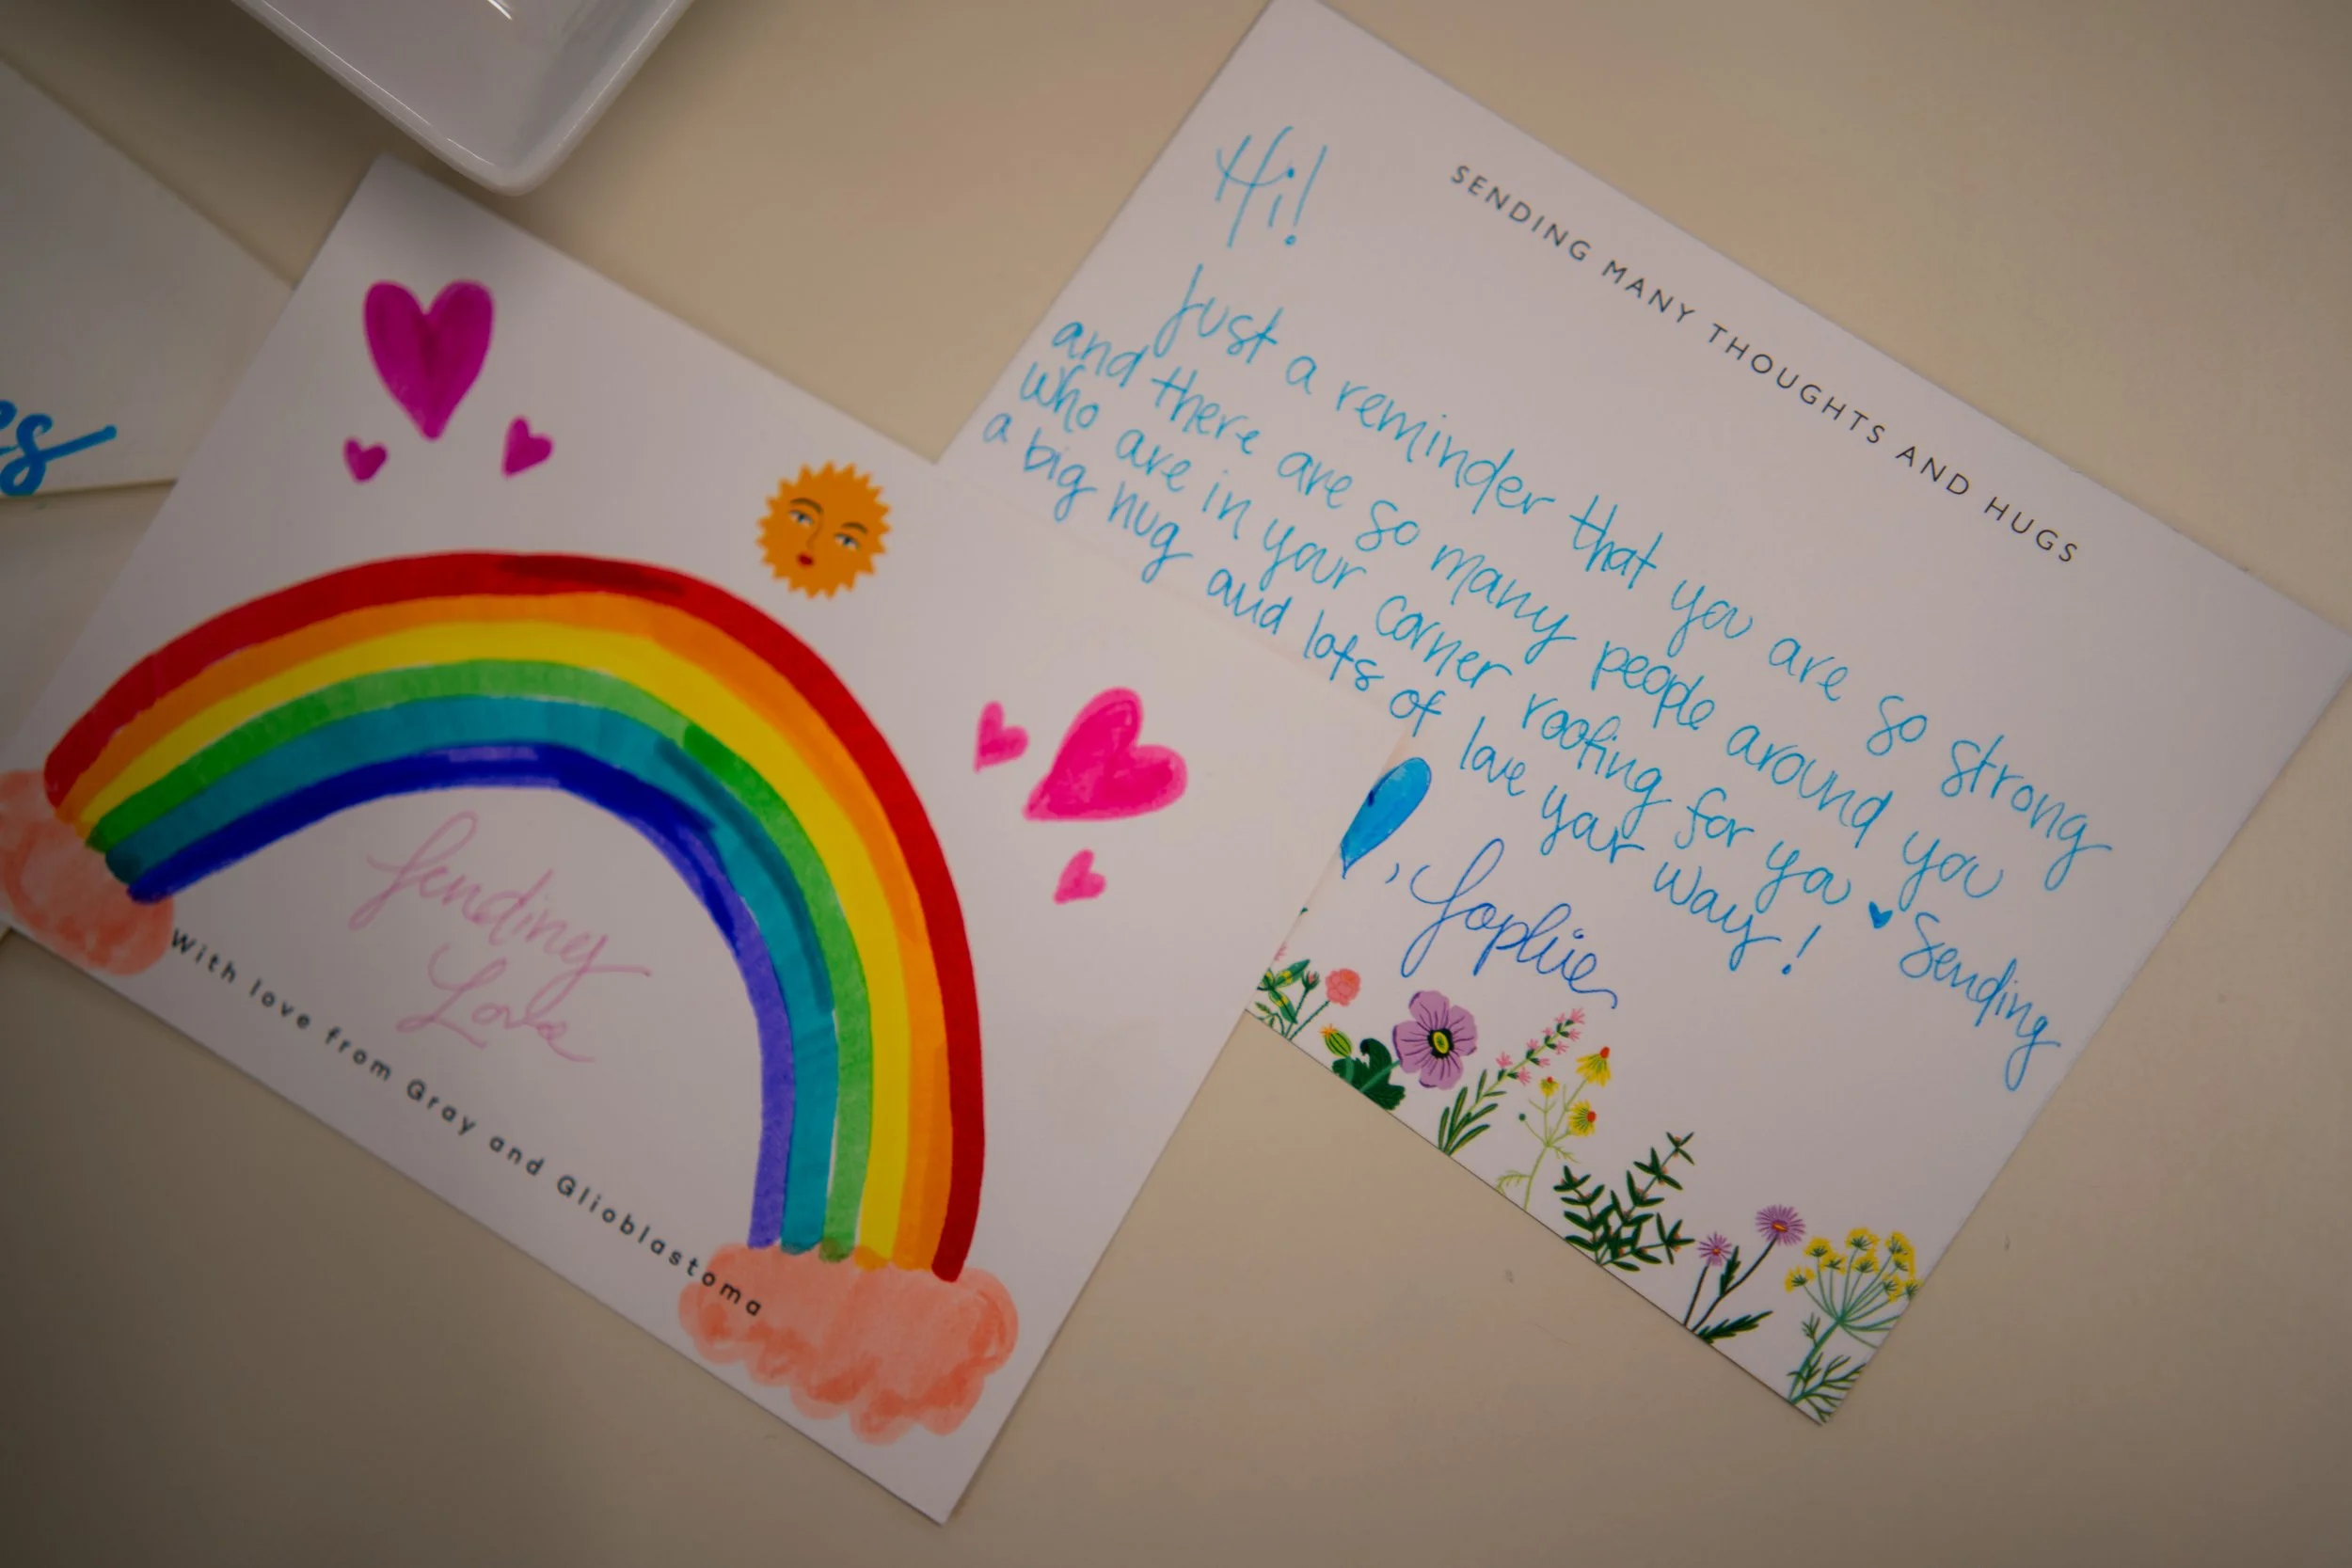 es
Sending
Love
With love from Gray and Glioblastoma
SENDING MANY THOUGHTS AND HUGS
Hi!
Just a reminder that you are so strong
and there are so many people around you
who are in your corner rooting for you ♥ Sending
a big hug and lots of love your way!
, Sophie